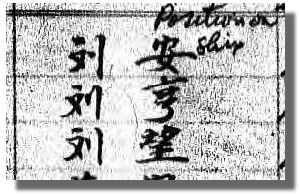 Position on
Ship
刘安
刘亨
刘望